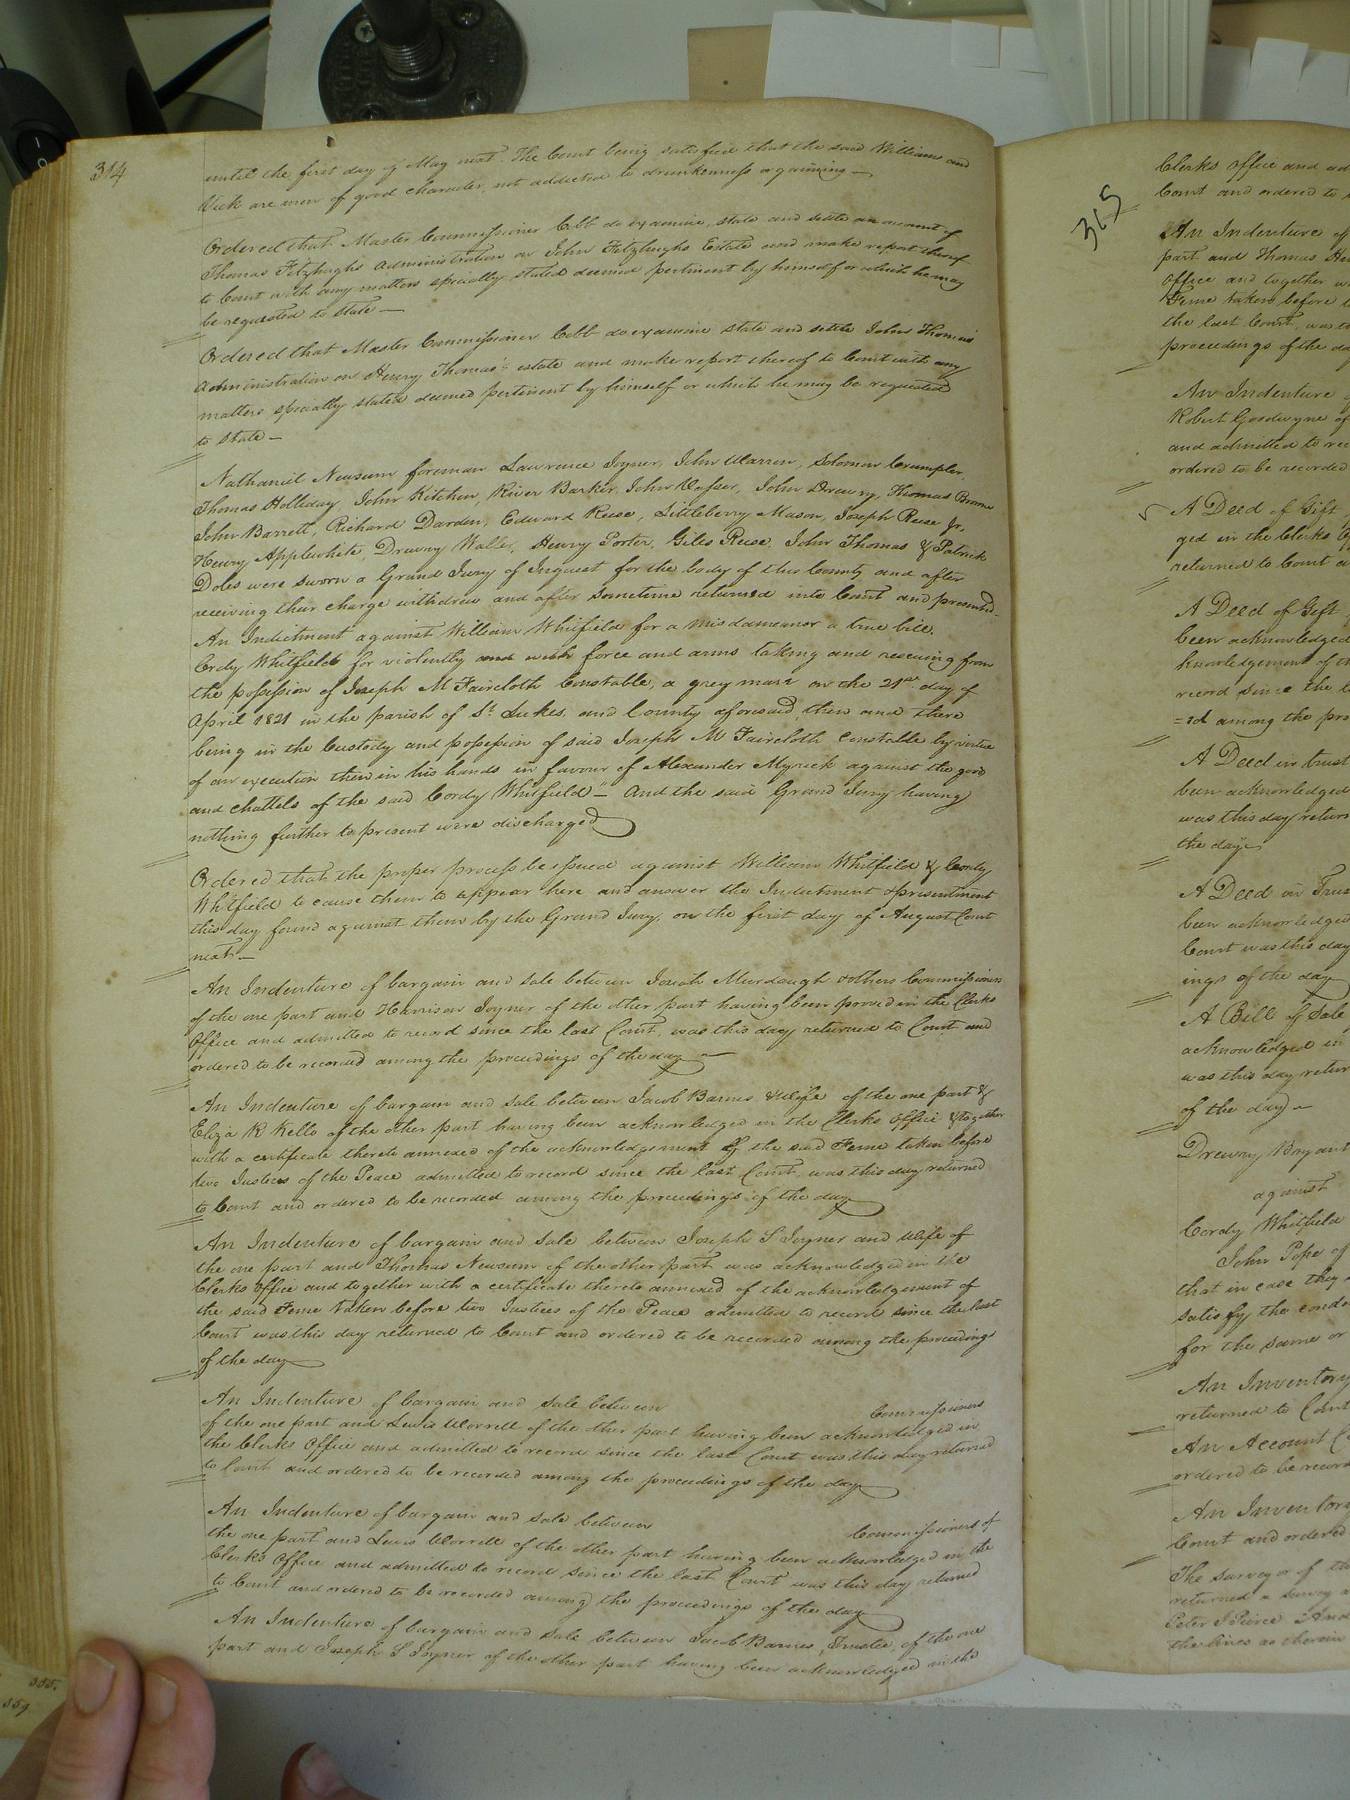 314
until the first day of May next. The Court being satisfied that the said Williams and
Vick are men of good character, not addicted to drunkenness or gaming —
Ordered that Master Commissioner Cobb do examine, state and settle an account of
Thomas Fitzhughs administration on John Fitzhughs Estate and make report thereof
to Court with any matters specially stated deemed pertinent by himself or which he may
be requested to state —
Ordered that Master Commissioner Cobb do examine state and settle John Thomas's
administration on Henry Thomas's estate and make report thereof to Court with any
matters specially stated deemed pertinent by himself or which he may be requested
to state —
Nathaniel Newsum foreman Lawrence Joyner, John Warren, Solomon Crumpler,
Thomas Holliday John Kitchen, River Barker, John Vasser, John Drewry, Thomas Browne
John Barrett, Richard Darden, Edward Reese, Littleberry Mason, Joseph Reese Jr.
Henry Applewhite, Drewry Waller, Henry Porter, Giles Reese, John Thomas & Patrick
Doles were sworn a Grand Jury of Inquest for the body of this County and after
receiving their charge withdrew and after sometime returned into Court and presented.
An Indictment against William Whitfield for a misdamemor a true bill.
Cordy Whitfield for violently and with force and arms taking and rescuing from
the possession of Joseph M Faircloth Constable, a grey mare on the 21st day of
April 1821 in the parish of St Lukes, and County aforesaid, then and there
being in the Custody and possession of said Joseph M Faircloth Constable by virtue
of an execution then in his hands in favour of Alexander Myrick against the good
and chattels of the said Cordy Whitfield — And the said Grand Jury having
nothing further to present were discharged
Ordered that the proper process be issued against William Whitfield & Cordy
Whitfield to cause them to appear here and answer the Indictment & presentment
this day found against them by the Grand Jury, on the first day of August Court
next —
An Indenture of bargain and sale between Josiah Murdaugh & others Commissioners
of the one part and Harrison Joyner of the other part having been proved in the Clerks
Office and admitted to record since the last Court, was this day returned to Court and
ordered to be recorded among the proceedings of the day —
An Indenture of bargain and sale between Jacob Barnes & wife of the one part &
Eliza R Kello of the other part having been acknowledged in the Clerks Office & together
with a certificate thereto annexed of the acknowledgement of the said Feme taken before
two Justices of the Peace admitted to record since the last Court, was this day returned
to Court and ordered to be recorded among the proceedings of the day
An Indenture of bargain and sale between Joseph S Joyner and wife of
the one part and Thomas Newsum of the other part was acknowledged in the
Clerks Office and together with a certificate thereto annexed of the acknowledgement of
the said Feme taken before two Justices of the Peace admitted to record since the last
Court was this day returned to Court and ordered to be recorded among the proceedings
of the day
An Indenture of bargain and sale between Commissioners
of the one part and Lewis Worrell of the other part having been acknowledged in
the Clerks Office and admitted to record since the last Court was this day returned
to Court and ordered to be recorded among the proceedings of the day
An Indenture of bargain and sale between Commissioners of
the one part and Lewis Worrell of the other part having been acknowledged in the
Clerks Office and admitted to record since the last Court was this day returned
to Court and ordered to be recorded among the proceedings of the day
An Indenture of bargain and sale between Jacob Barnes, Trustee, of the one
part and Joseph S Joyner of the other part having been acknowledged in the
315
Clerks office and ad
Court and ordered to
An Indenture of
part and Thomas
Office and together
Feme taken before
the last Court, was
proceedings of the
An Indenture
Robert Goodwyne of
and admitted to rec
ordered to be recorded
A Deed of Gift
ged in the Clerks
returned to Court
A Deed of Gift
been acknowledged
knowledgement of
record since the
=ed among the pro
A Deed in trust
been acknowledged
was this day return
the day
A Deed in Trus
been acknowledged
Court was this day
ings of the day
A Bill of Sale
acknowledged in
was this day retur
of the day —
Drewry Bryant
against
Cordy Whitfield
John Pope of
that in case they
satisfy the conde
for the same or
An Inventory
returned to Court
An Account
ordered to be recor
An Inventory
Court and ordered
The surveyor of
returned a survey
Peter J Pierce & And
the lines as therein
355.
359